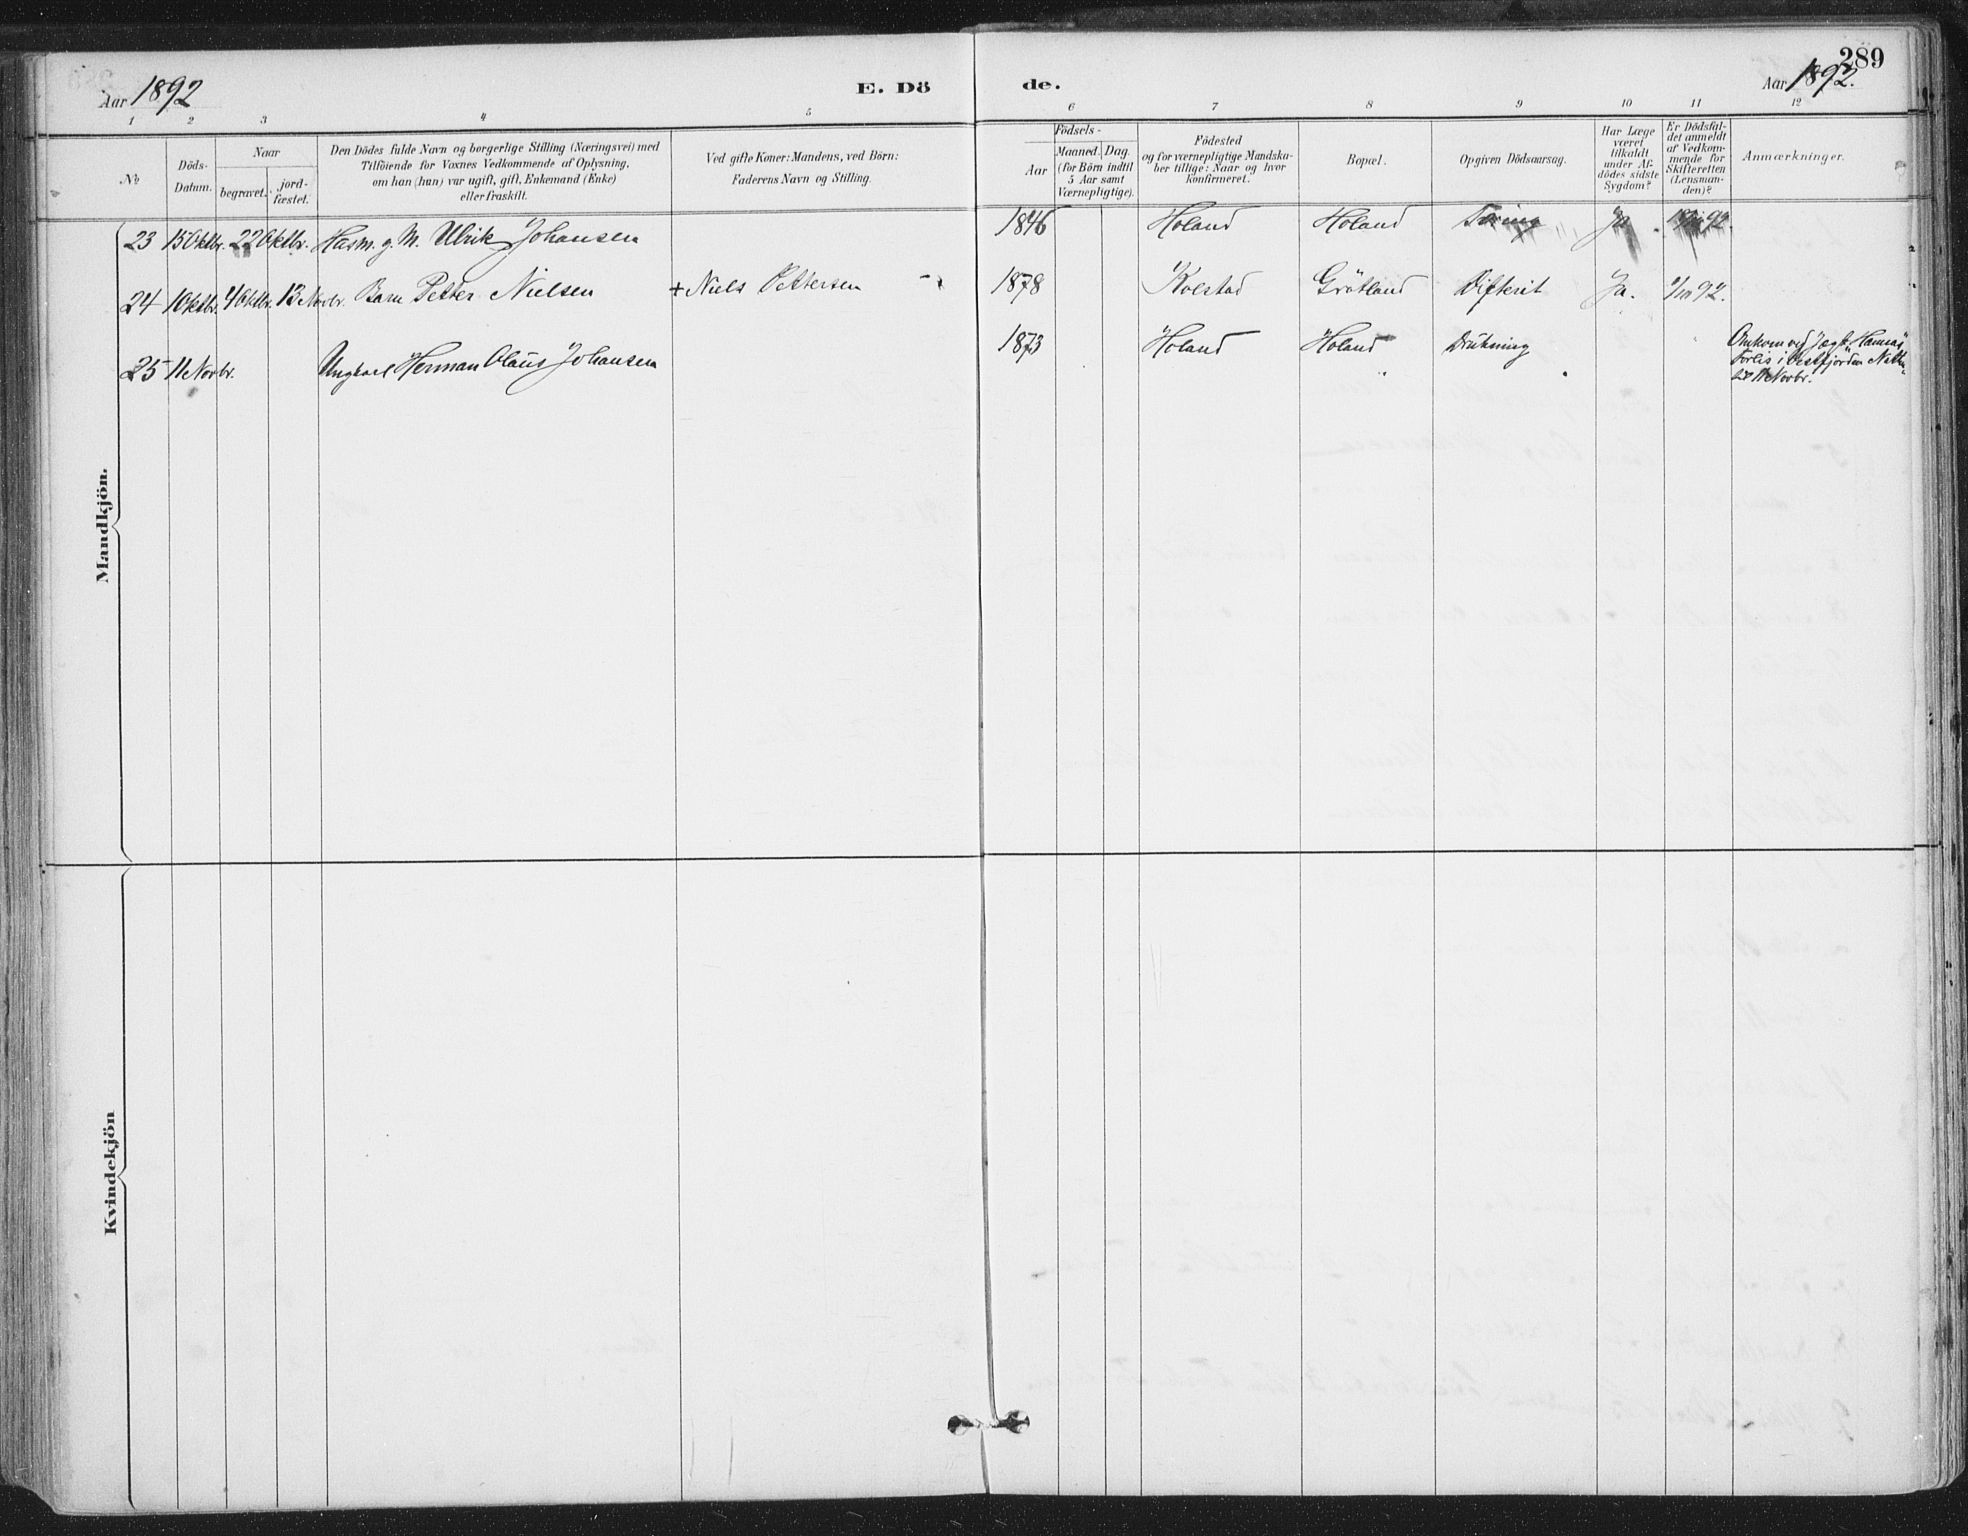 289
Aar 1892 E. Dö de. Aar 1892.
1 2 3 4 5 6 7 8 9 10 11 12
№
Döds-
Datum.
Naar
begravet.
jord-
fæstet.
Den Dödes fulde Navn og borgerlige Stilling (Næringsvei) med
Tilföiende for Voxnes Vedkommende af Oplysning,
om han (hun) var ugift, gift, Enkemand (Enke)
eller fraskilt.
Ved gifte Koner: Mandens, ved Börn:
Faderens Navn og Stilling.
Födsels-
Aar
Maaned. Dag.
(for Börn indtil
5 Aar samt
Værnepligtige).
Födested
og for værnepligtige Mandska-
ber tillige: Naar og hvor
Konfirmeret.
Bopæl.
Opgiven Dödsaarsag.
Har Læge
været
tilkaldt
under Af-
dödes sidste
Sygdom?
Er Dödsfal-
det anmeldt
af Vedkom-
mende for
Skifteretten
(Lensman-
den)?
Anmærkninger.
Mandkjön.
23 15 Oktbr. 22 Oktbr. Husm. g. M. Ulrik Johansen 1846 Holand Holand Tæring Ja 92.
24 1 Oktbr. 4 Oktbr. 13 Novbr. Barn Petter Nielsen + Niels Pettersen 1878 Kolstad Grötland Difterit Ja. 1/10 92.
25 11 Novbr. Ungkarl Herman Olaus Johansen 1873 Holand Holand Drukning Omkom ved Jagt "Hannas"
Forlis i Vestfjorden Natten
til 11 Novbr.
Kvindekjön